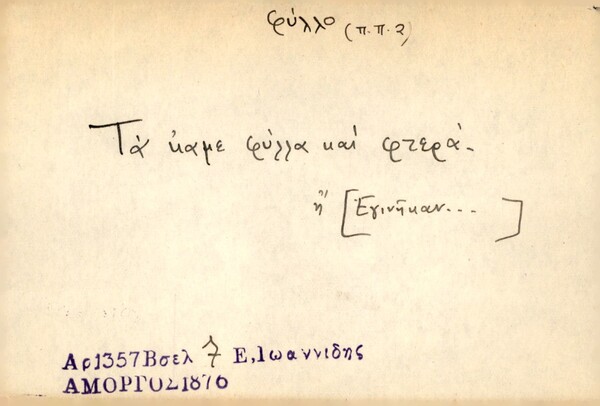 φύλλο (π.π.2)
Τά καμε φύλλα καί φτερά.
ἤ [Ἐγινῆκαν... ]
Αρ1357Βσελ 7 Ε,Ιωαννιδης
ΑΜΟΡΓΟΣ1876